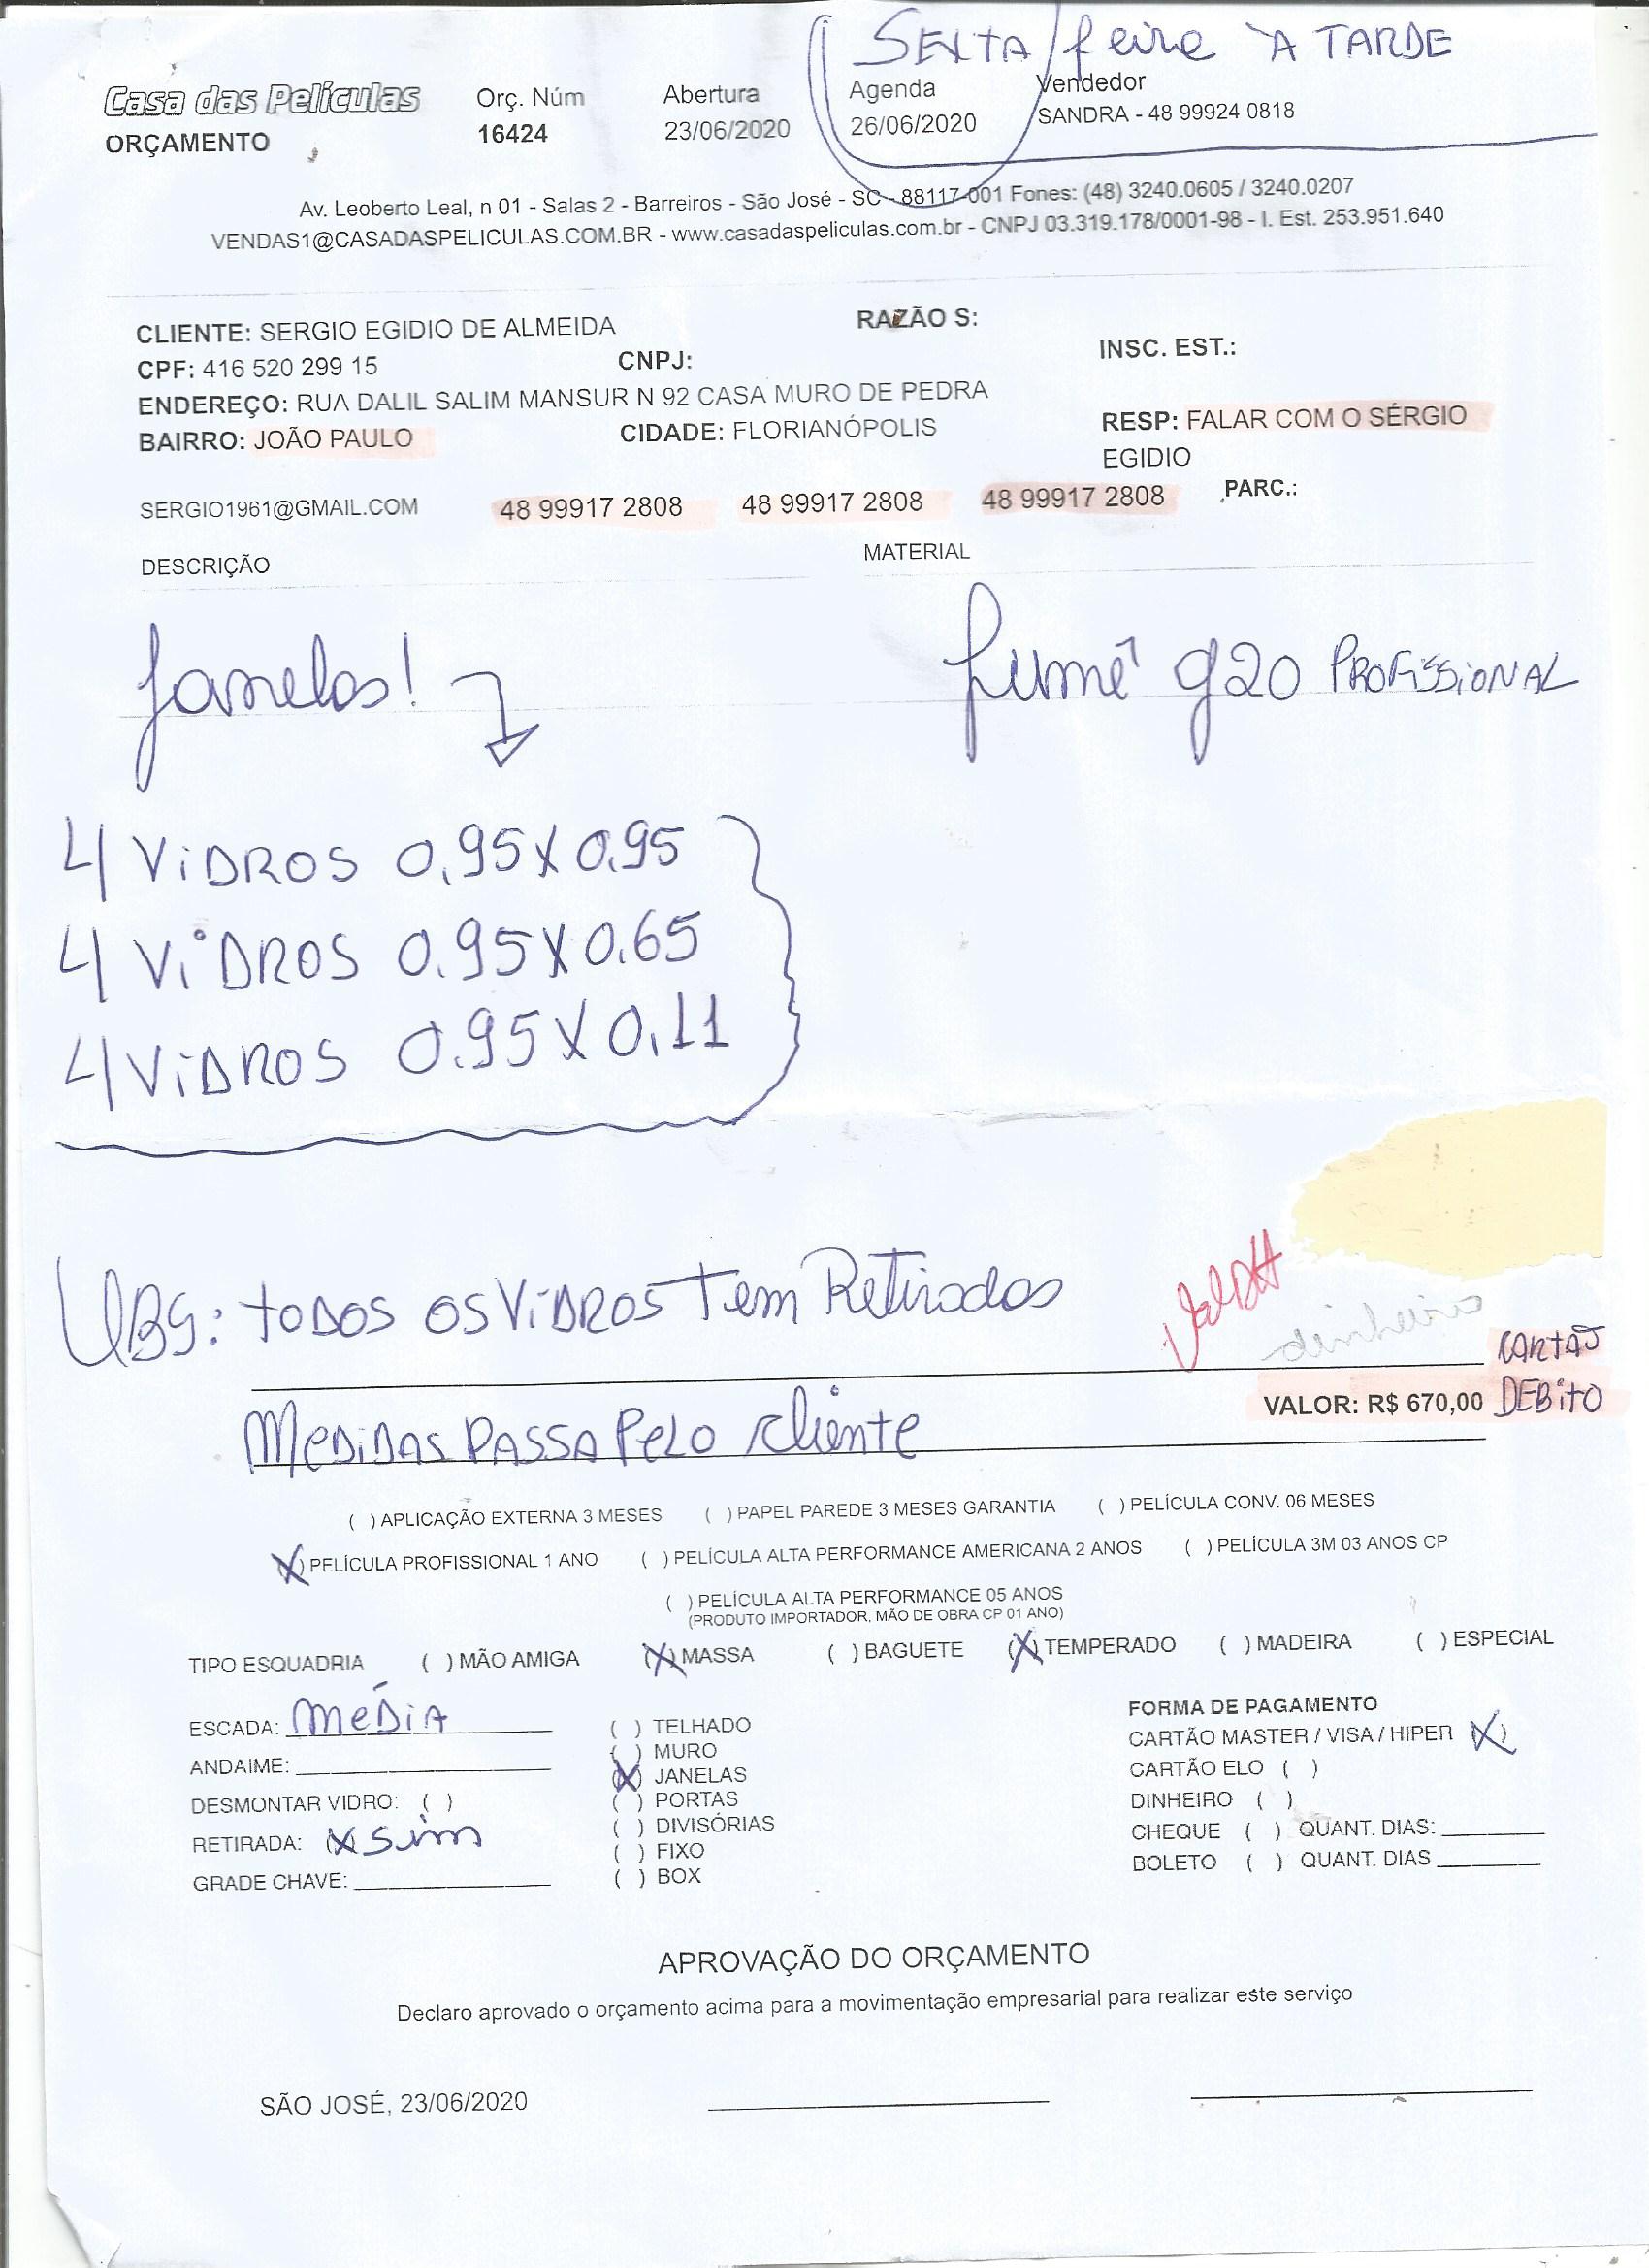 SEXTA/feira À TARDE
Casa das Películas Orç. Núm Abertura Agenda Vendedor
ORÇAMENTO 16424 23/06/2020 26/06/2020 SANDRA - 48 99924 0818
Av. Leoberto Leal, n 01 - Salas 2 - Barreiros - São José - SC - 88117-001 Fones: (48) 3240.0605 / 3240.0207
VENDAS1@CASADASPELICULAS.COM.BR - www.casadaspeliculas.com.br - CNPJ 03.319.178/0001-98 - I. Est. 253.951.640
CLIENTE: SERGIO EGIDIO DE ALMEIDA RAZÃO S:
CPF: 416 520 299 15 CNPJ: INSC. EST.:
ENDEREÇO: RUA DALIL SALIM MANSUR N 92 CASA MURO DE PEDRA
BAIRRO: JOÃO PAULO CIDADE: FLORIANÓPOLIS RESP: FALAR COM O SÉRGIO
EGIDIO
SERGIO1961@GMAIL.COM 48 99917 2808 48 99917 2808 48 99917 2808 PARC.:
DESCRIÇÃO MATERIAL
Janelas! fumê g20 PROFISSIONAL
4 VIDROS 0,95X0,95
4 VIDROS 0.95X0.65
4 VIDROS 0.95X0,11
OBS: TODOS OS VIDROS Tem Retirados
dinheiro CARTÃO
VALOR: R$ 670,00 DEBITO
MEDIDAS PASSA PELO cliente
( ) APLICAÇÃO EXTERNA 3 MESES ( ) PAPEL PAREDE 3 MESES GARANTIA ( ) PELÍCULA CONV. 06 MESES
(X) PELÍCULA PROFISSIONAL 1 ANO ( ) PELÍCULA ALTA PERFORMANCE AMERICANA 2 ANOS ( ) PELÍCULA 3M 03 ANOS CP
( ) PELÍCULA ALTA PERFORMANCE 05 ANOS
(PRODUTO IMPORTADOR, MÃO DE OBRA CP 01 ANO)
TIPO ESQUADRIA ( ) MÃO AMIGA (X) MASSA ( ) BAGUETE (X) TEMPERADO ( ) MADEIRA ( ) ESPECIAL
ESCADA: MÉDIA
ANDAIME:
DESMONTAR VIDRO: ( )
RETIRADA: (X) Sim
GRADE CHAVE:
( ) TELHADO
( ) MURO
(X) JANELAS
( ) PORTAS
( ) DIVISÓRIAS
( ) FIXO
( ) BOX
FORMA DE PAGAMENTO
CARTÃO MASTER / VISA / HIPER (X)
CARTÃO ELO ( )
DINHEIRO ( )
CHEQUE ( ) QUANT. DIAS:
BOLETO ( ) QUANT. DIAS
APROVAÇÃO DO ORÇAMENTO
Declaro aprovado o orçamento acima para a movimentação empresarial para realizar este serviço
SÃO JOSÉ, 23/06/2020